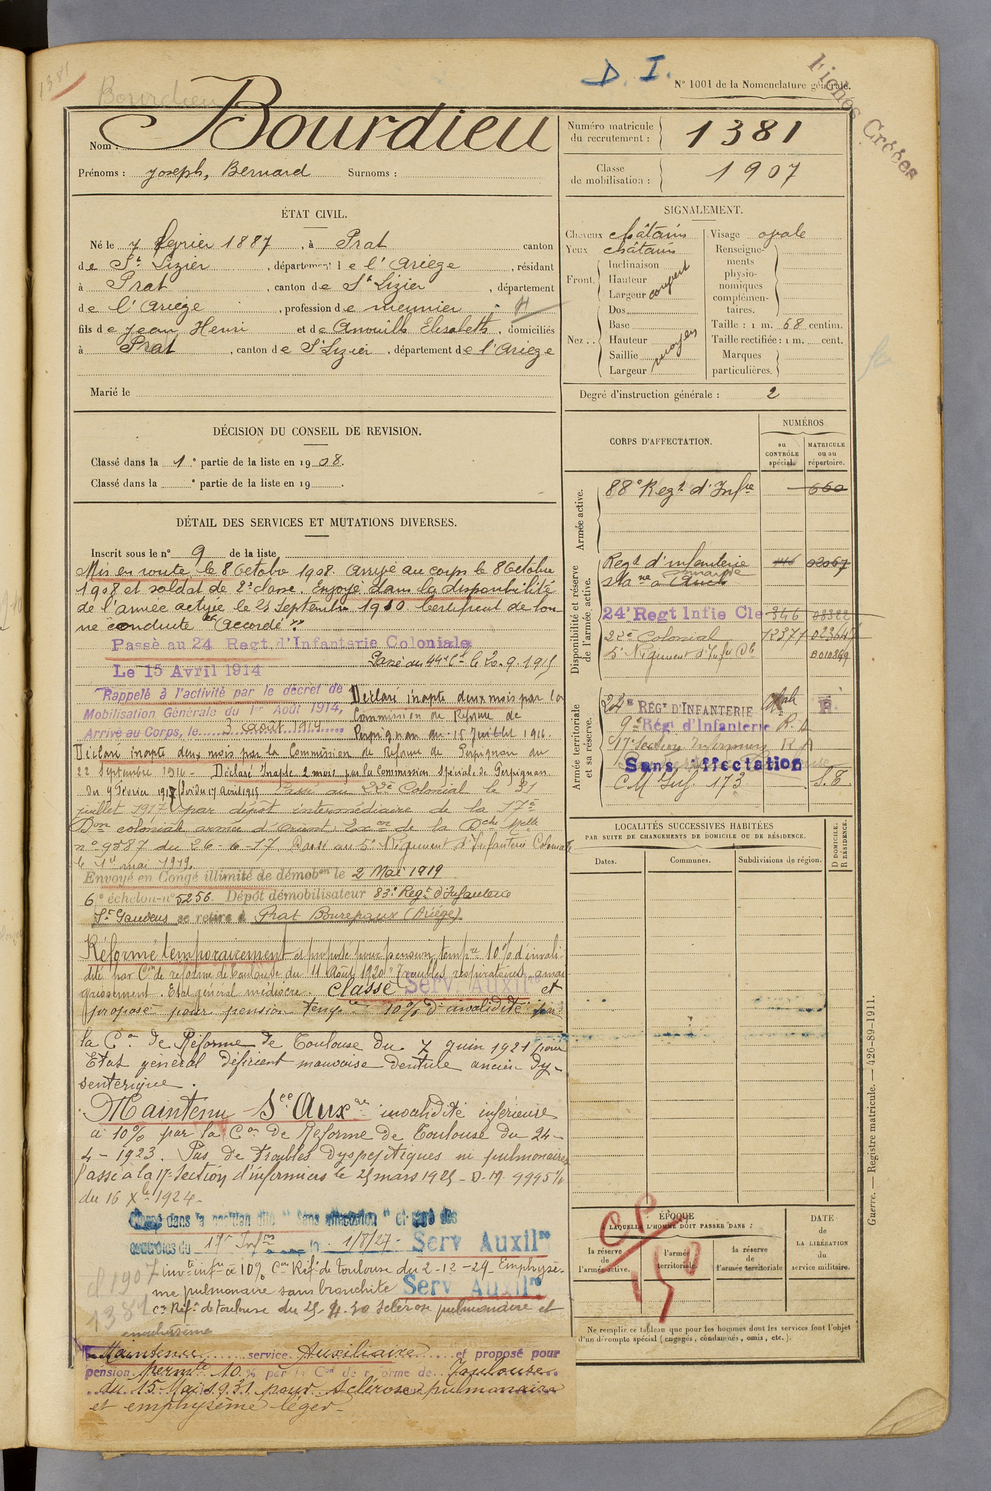 1381
Bourdieu
D. I.
N° 1001 de la Nomenclature générale.
Fiches Créées
Nom : Bourdieu
Prénoms : Joseph, Bernard Surnoms :
Numéro matricule du recrutement : 1381
Classe de mobilisation : 1907
ÉTAT CIVIL.
Né le 7 février 1887, à Prat canton
de St Lizier, département de l'Ariège, résidant
à Prat, canton de St Lizier, département
de l'Ariège, profession de meunier
fils de Jean Henri et de Anouilh Elisabeth, domiciliés
à Prat, canton de St Lizier, département de l'Ariège
Marié le
SIGNALEMENT.
Cheveux châtains
Yeux châtains
Front.
Inclinaison
Hauteur
Largeur
Nez..
Dos
Base
Hauteur
Saillie
Largeur
moyen
Visage ovale
Renseignements physionomiques complémentaires.
Taille : 1 m. 68 centim.
Taille rectifiée : 1 m. cent.
Marques particulières.
Degré d'instruction générale : 2
DÉCISION DU CONSEIL DE REVISION.
Classé dans la 1e partie de la liste en 1908.
Classé dans la e partie de la liste en 19 .
DÉTAIL DES SERVICES ET MUTATIONS DIVERSES.
Inscrit sous le n° 9 de la liste
Mis en route le 8 Octobre 1908. Arrivé au corps le 8 Octobre
1908 et soldat de 2e classe. Envoyé dans la disponibilité
de l'armée active le 25 Septembre 1910. Certificat de bon
ne conduite "accordé".
Passé au 24 Regt. d'Infanterie Coloniale
Le 15 Avril 1914
Passé au 44e Cal le 20.9.1915
Rappelé à l'activité par le décret de
Mobilisation Générale du 1er Août 1914,
Arrivé au Corps, le 3 août 1914
Déclaré inapte deux mois par la
Commission de Réforme de
Perpignan du 15 Juillet 1916.
Déclaré inapte deux mois par la Commission de Réforme de Perpignan du
22 Septembre 1916 - Déclaré Inapte 2 mois par la Commission spéciale de Perpignan
du 9 février 1917 Passé au 22e Colonial le 31
juillet 1917 par dépôt intermédiaire de la 17e
Don coloniale armée d'Orient Exon de la Dche Mlle
n° 9587 du 26-6-17 Passé au 5e Régiment d'Infanterie Coloniale
le 1er mai 1919.
Envoyé en Congé illimité de démobon le 2 Mai 1919
6e échelon n° 5256. Dépôt démobilisateur 83e Regt d'Infanterie
St Gaudens se retire à Prat Bonrepaux (Ariège)
Réformé temporairement et proposé pour pension tempre 10% d'invali
dité par Con de réforme de Toulouse du 11 Août 1920 "troubles respiratoires amai
grissement. Etat général médiocre. Classé Serv Auxil et
proposé pour pension tempre 10% d'invalidité par
la Con de Réforme de Toulouse du 7 Juin 1921 pour
Etat général déficient mauvaise denture ancien dy-
sentérique.
Maintenu See Auxre invalidité inférieure
à 10% par la Con de Réforme de Toulouse du 24-
4-1923. Pas de troubles dyspeptiques ni pulmonaires
Passé à la 17e Section d'infirmiers le 25 mars 1925 - D.M. 9995
du 16 Xbre 1924 -
Classé dans la position dite "Sans affectation" et rayé des
contrôles du 17e Infers le 1/8/27- Serv Auxilre
invté infre à 10% Con Réf. de Toulouse du 2-12-29 Emphysè-
me pulmonaire sans bronchite Serv Auxilre
Con Réf. de Toulouse du 25-4-30 Sclérose pulmonaire et
emphysème
cl 1907
1381
Maintenu service Auxiliaire et proposé pour
pension permte 10 % par la Con de Réforme de Toulouse
du 15 Mai 1931 pour Sclérose pulmonaire
et emphysème léger-
CORPS D'AFFECTATION.
NUMÉROS
au CONTRÔLE spécial.
MATRICULE ou au répertoire.
Armée active.
88e Regt d'Infie 660
Disponibilité et réserve de l'armée active.
Regt d'infanterie
24e Regt Infie Cle 346 08322
22e Colonial
5e Régiment d'Infie Cle
Armée territoriale et sa réserve.
RÉGt D'INFANTERIE
9e Rég. d'Infanterie R. A
17e Section Infirmiers R A
Sans affectation
C.M Inf. 173 S.E.
LOCALITÉS SUCCESSIVES HABITÉES
PAR SUITE DE CHANGEMENTS DE DOMICILE OU DE RÉSIDENCE.
Dates.
Communes.
Subdivisions de région.
D DOMICILE.
R RÉSIDENCE.
ÉPOQUE
À LAQUELLE L'HOMME DOIT PASSER DANS :
la réserve de l'armée active.
l'armée territoriale.
la réserve de l'armée territoriale
DATE de LA LIBÉRATION du service militaire.
Ne remplir ce tableau que pour les hommes dont les services font l'objet
d'un décompte spécial (engagés, condamnés, omis, etc.).
Guerre. — Registre matricule. — 426-89-1911.